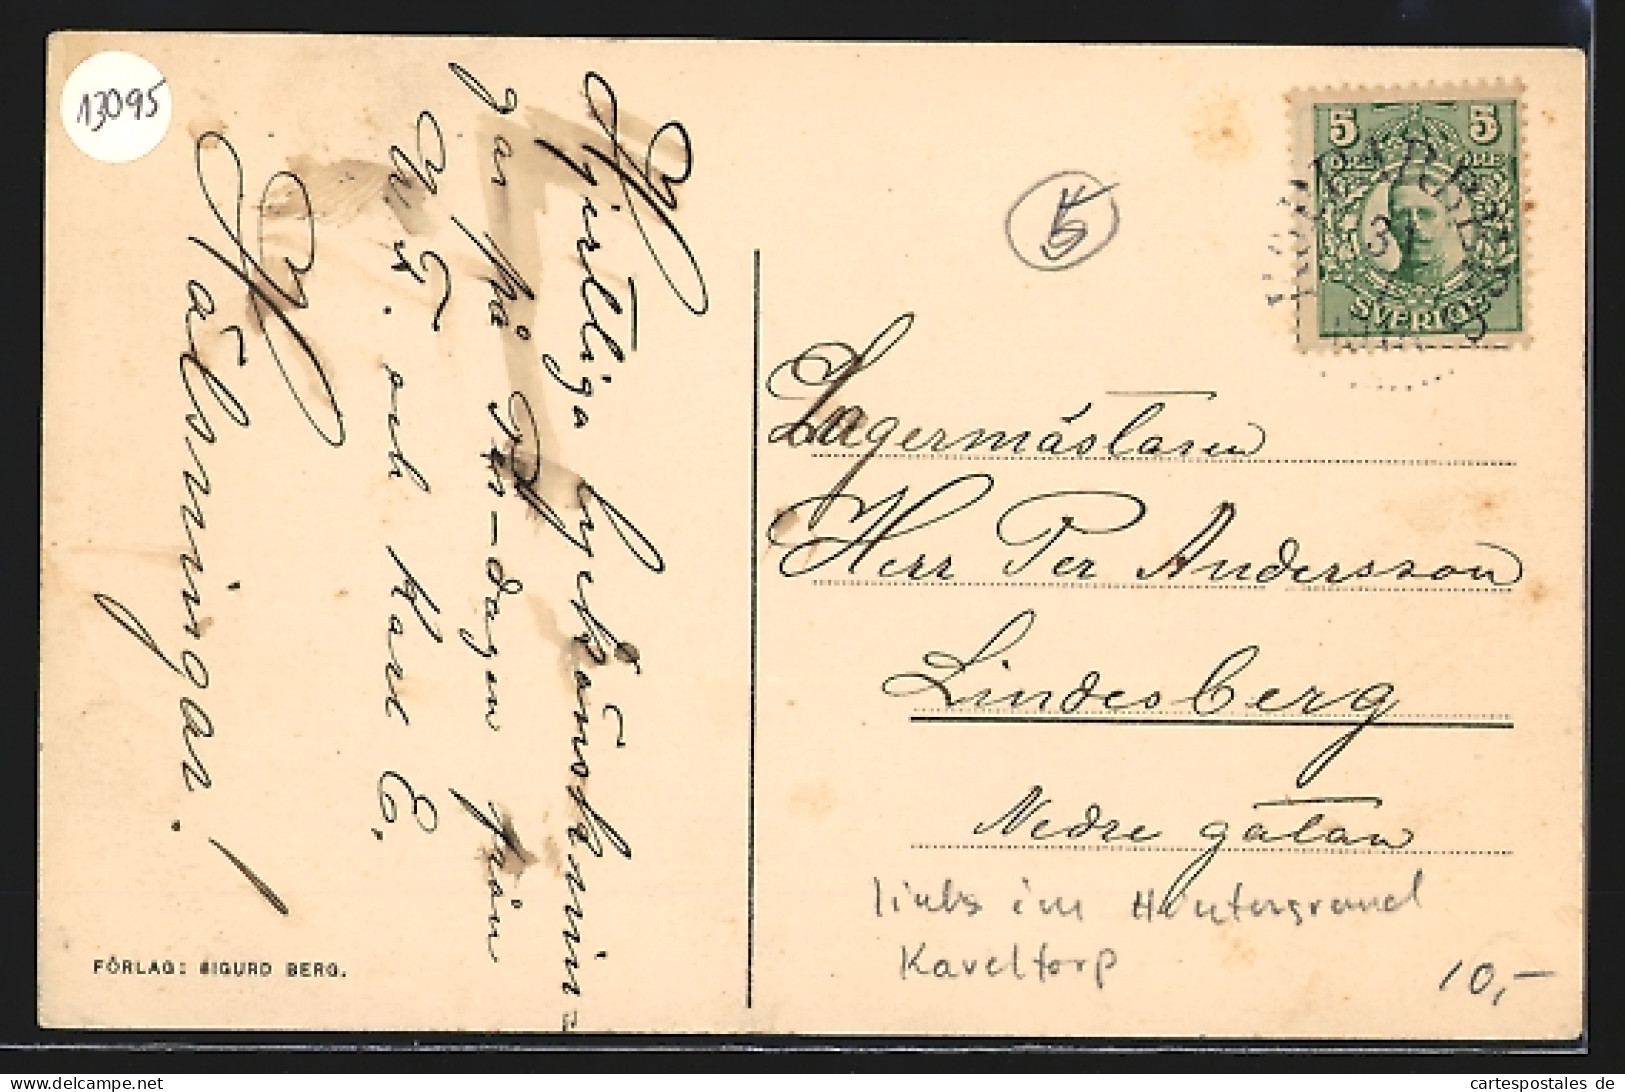 13095
Hjertliga lyckönsknin=
gar på
-dagen från
och Karl E.
Hälsningar!
FÖRLAG: SIGURD BERG.
5
5 5
ÖRE ÖRE
SVERIGE
31
Lagermästaren
Herr Per Andersson
Lindesberg
Nedre gatan
links im Hintergrund
Kaveltorp
10,-
cartespostales de